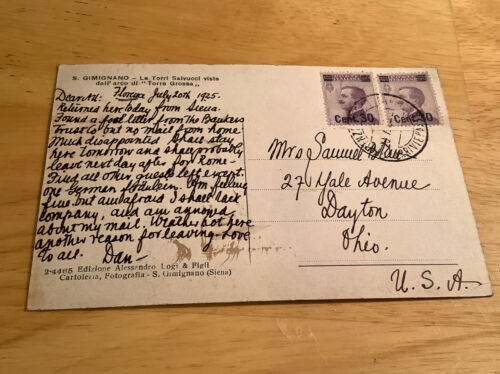 S. GIMIGNANO – Le Torri Salvucci viste
dall'arco di "Torre Grossa"
Florence July 20th 1925.
Returned here today from Siena.
Found a fool letter from The Bankers
Trust Co but no mail from home
Much disappointed Shall stay
here tomorrow and shall probably
leave next day after for Rome –
Find all other guests left except
one German fräulein. Am feeling
fine, but am afraid I shall lack
company, and am annoyed
about my mail. Weather hot here
another reason for leaving. Love
to all. Dan –
2-4465 Edizione Alessandro Logi & Figli
Cartoleria, Fotografia - S. Gimignano (Siena)
Cent. 30
Cent. 30
Mrs Samuel
27 Yale Avenue
Dayton
Ohio.
U. S. A.